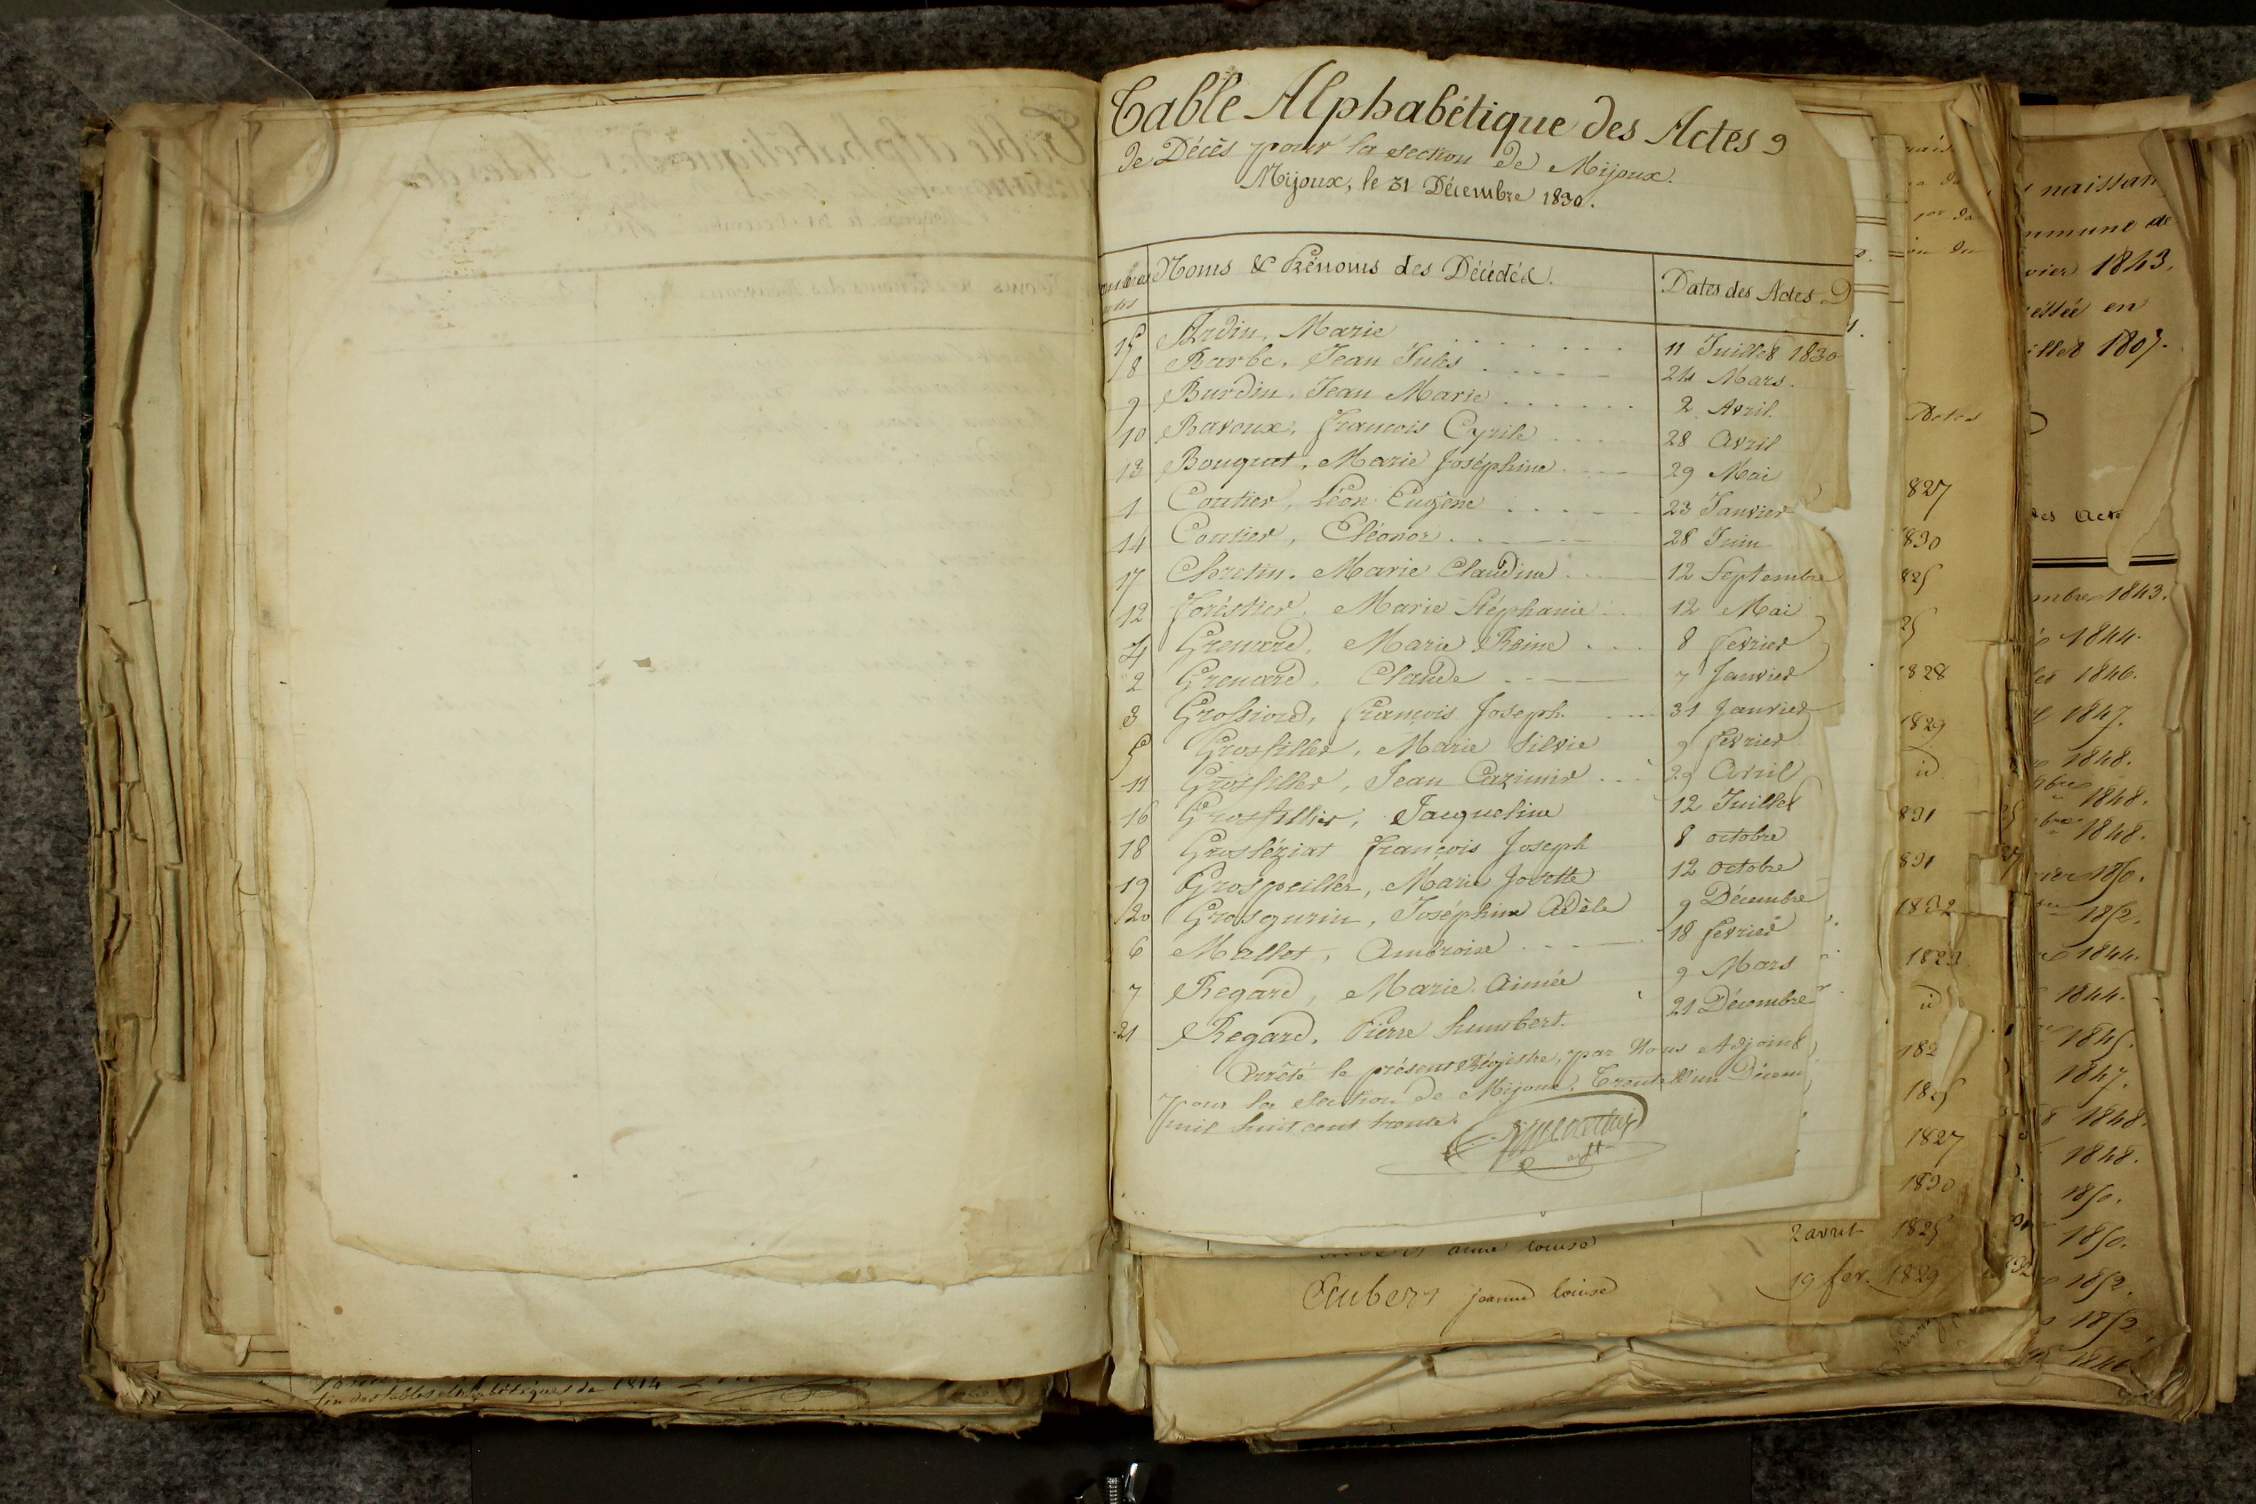 Table Alphabétique des Actes
de Décès pour la section de Mijoux.
Mijoux, le 31 Décembre 1830.
Noms & Prénoms des Décédés. Dates des Actes
15 Ardin, Marie 11 Juillet 1830
8 Barbe, Jean Jules 24 Mars.
9 Burdin, Jean Marie 2 Avril
10 Bavoux, François Cyrile 28 Avril
13 Bouquet, Marie Joséphine 29 Mai
1 Coutier, Léon Eugène 23 Janvier
14 Coutier, Eléonor 28 Juin
17 Chretin, Marie Claudine 12 Septembre
12 Foréstier, Marie Stéphanie 12 Mai
4 Grenard, Marie Reine 8 fevrier
2 Grenard, Claude 7 Janvier
3 Grossiord, François Joseph 31 Janvier
5 Grosfiller, Marie Silvie 9 fevrier
11 Grosfiller, Jean Cazimir 29 Avril
16 Grosfillier, Jacqueline 12 Juillet
18 Gros François Joseph 8 octobre
19 Grospeiller, Marie Josette 12 octobre
20 Grosgurin, Joséphine Adèle 9 Décembre
6 Mallet, Ambroise 18 fevrier
7 Regard, Marie Aimée 9 Mars
21 Regard, Pierre humbert 21 Décembre
Arrêté le présent Régistre, par Nous Adjoint
pour la section de Mijoux. Trente & un Décem
mil huit cent trente.
anne louise 2 avril 1825
jeanne louise 19 fev. 1829
827
1830
1828
1829
id
831
831
1832
id
1827
1830
naissan
vier 1843.
1807.
des Acte
mbre 1843.
1844.
1846.
1847.
1848.
1848.
1848.
1850.
1852.
1844.
1844.
1845.
1847.
1848.
1848.
1850.
1850.
1852.
1852
fin des tables alphabétiques de 1814